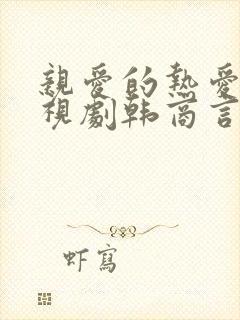 親愛的熱愛
視劇韩商言
虾寫